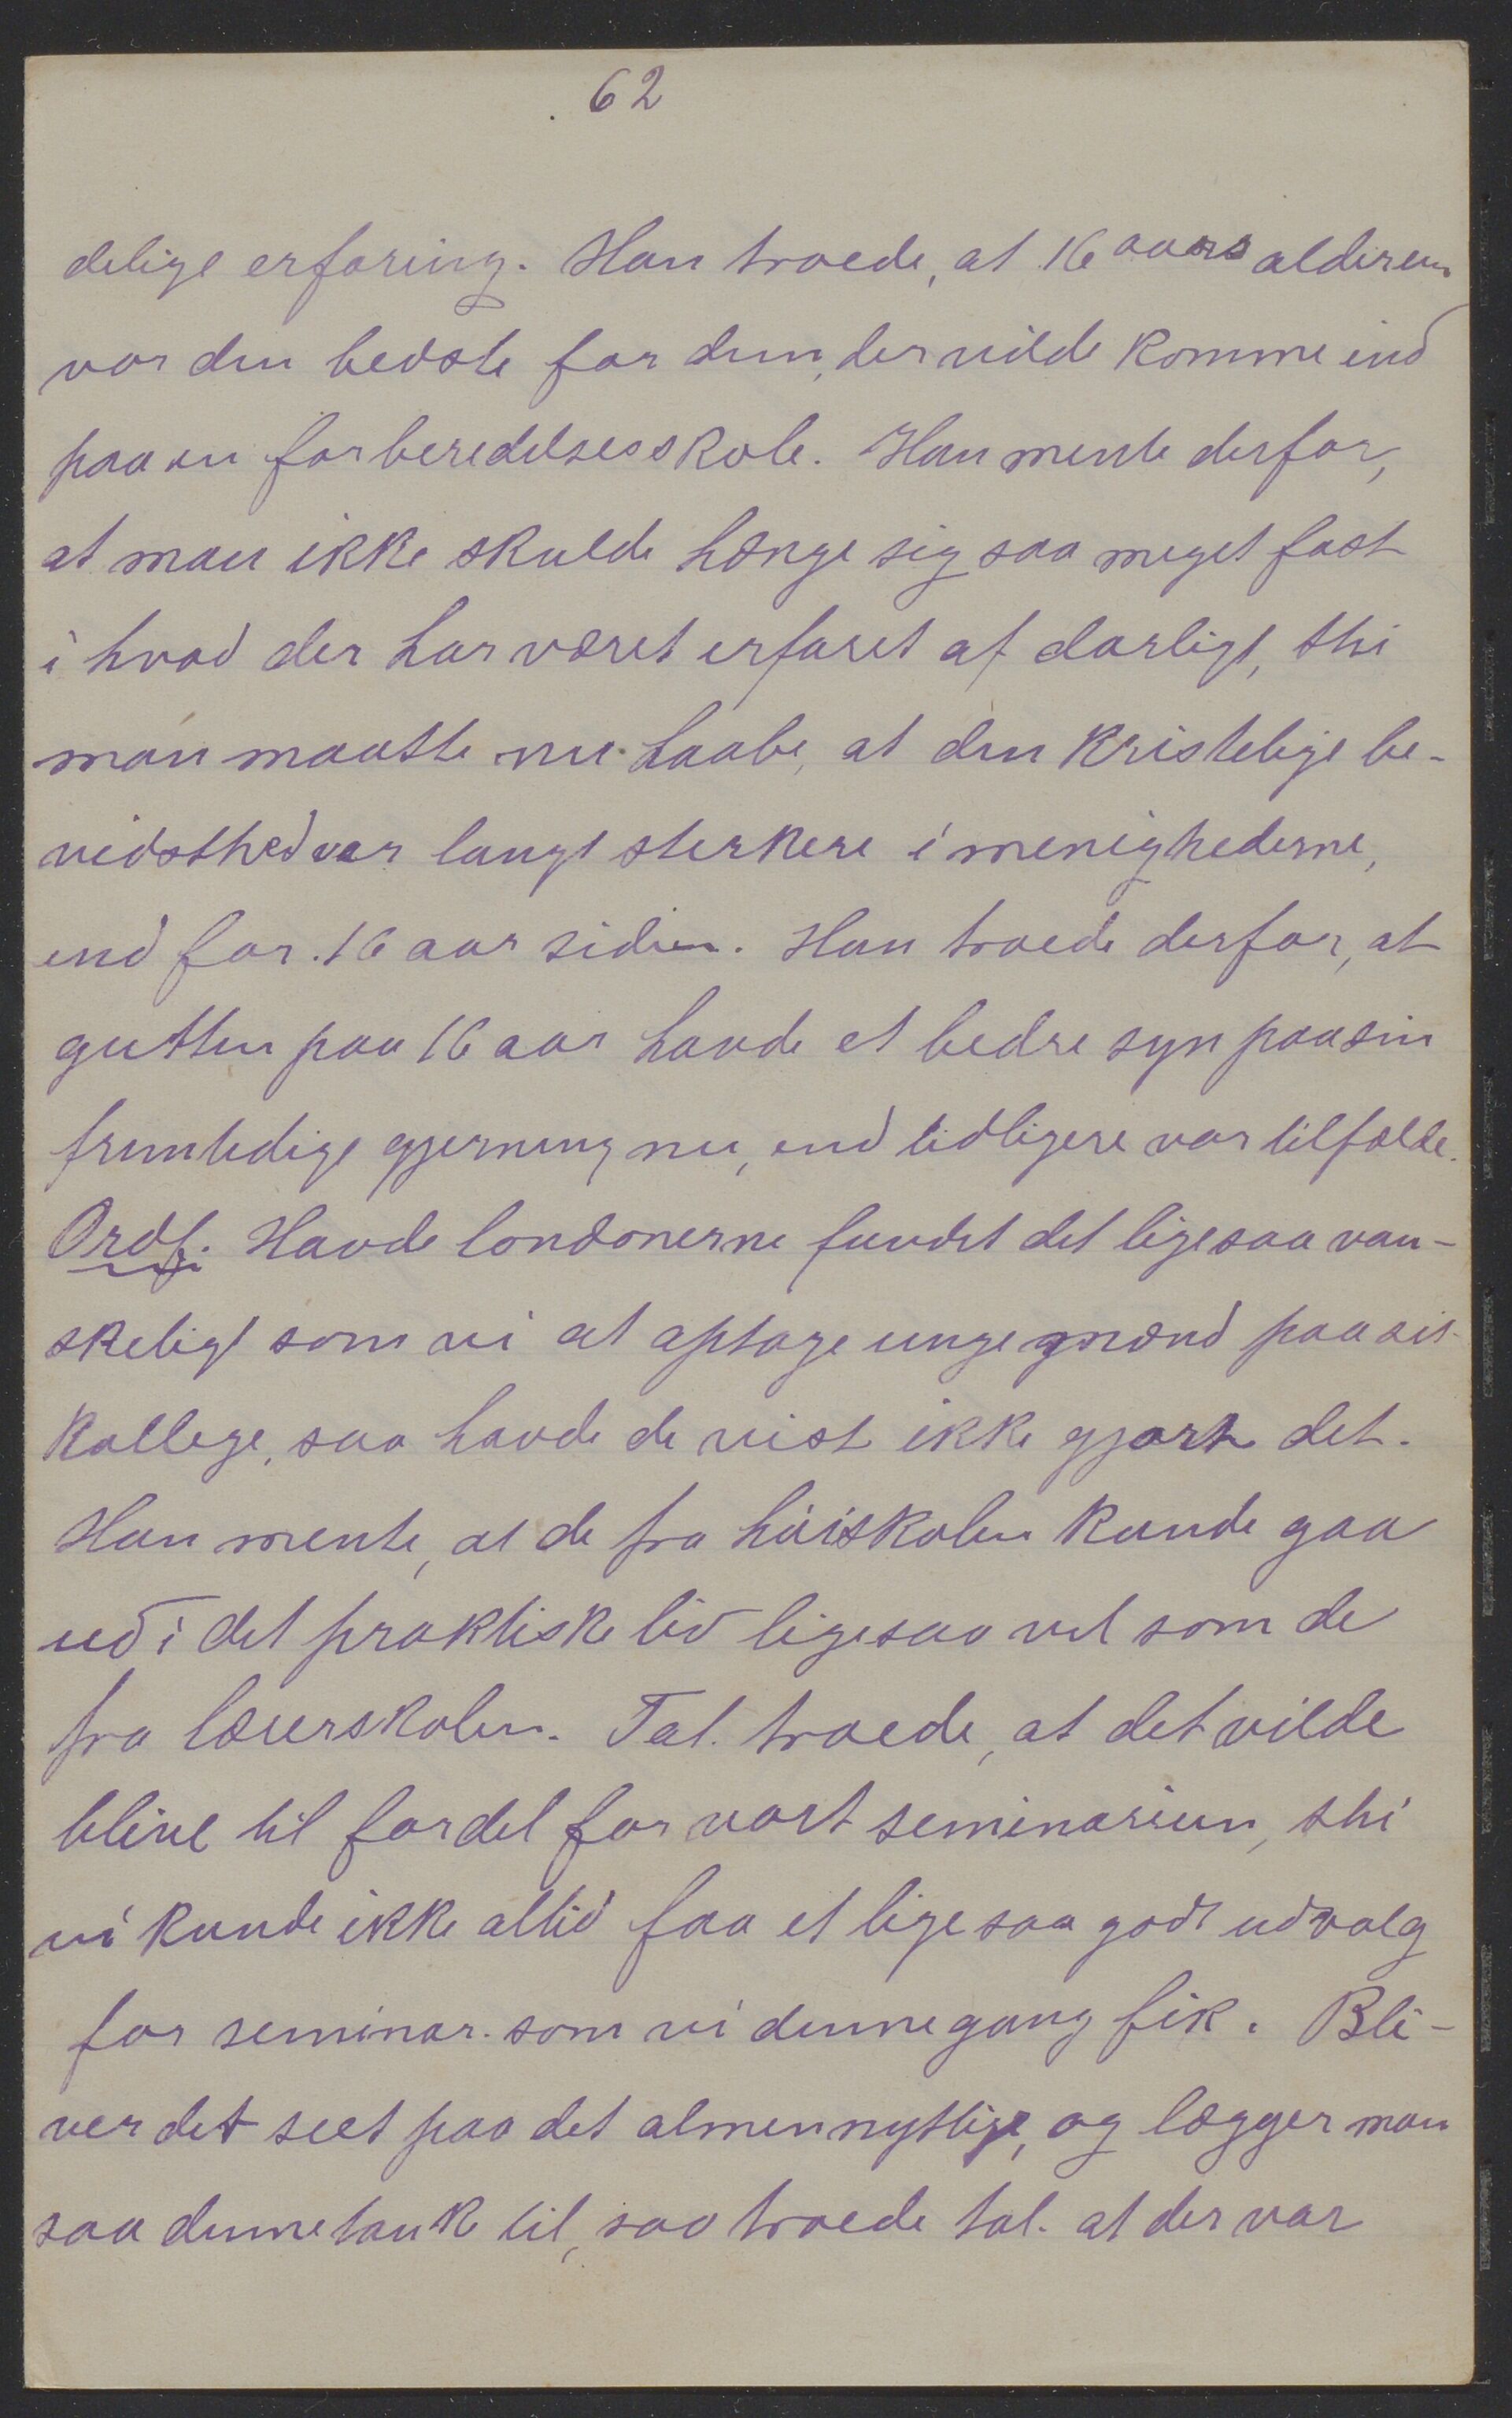 62
delige erfaring. Han troede, at 16 aars alderen
var den bedste for dem, der vilde komme ind
paa en forberedelsesskole. Han mente derfor,
at man ikke skulde hænge sig saa meget fast
i hvad der har været erfaret af darligt, thi
man maatte nu haabe, at den kristelige be-
vidsthed var langt sterkere i menighederne,
end for 16 aar siden. Han troede derfor, at
gutten paa 16 aar havde et bedre syn paa sin
fremtidige gjerning nu, end tidligere var tilfælde.
Ordf. Havde londonerne fundet det ligesaa van-
skeligt som vi at optage unge mænd paa sit
kollege, saa havde de vist ikke gjort det.
Han mente, at de fra høiskolen kunde gaa
ud i det praktiske liv ligesaa vel som de
fra lærerskolen. Tal. troede, at det vilde
blive til fordel for vort seminarium, thi
vi kunde ikke altid faa et ligesaa godt udvalg
for seminar. som vi denne gang fik. Bli-
ver det seet paa det almennyttige, og lægger man
saa denne tank til, saa troede tal. at der var